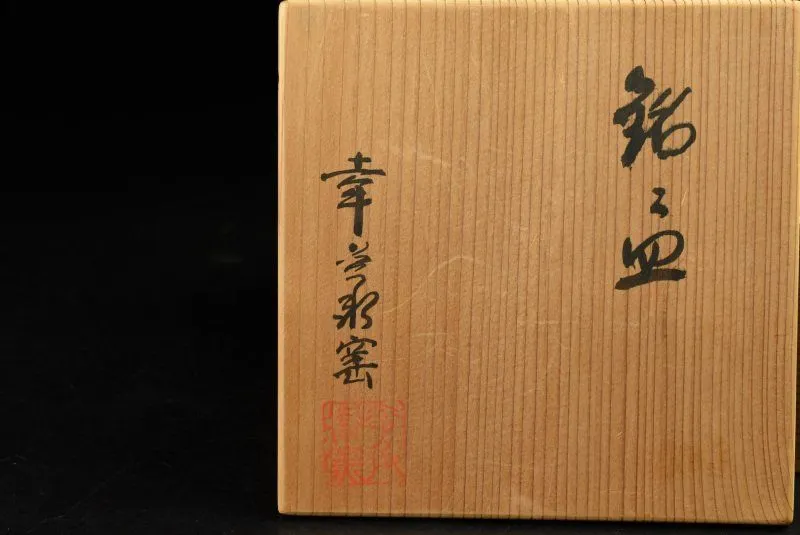 銘々皿
幸兵衛窯